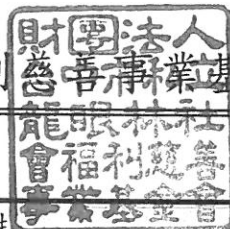 財團法人
慈善事業基
龍眼林社
會福利慈善
事業基金會